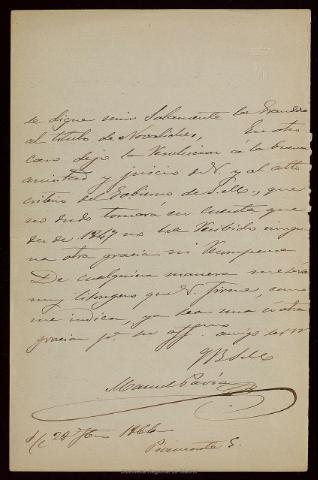 se digne unir solamente la Grandeza
al título de Novaliches, En otro
caso dejo la resolucion á la buena
amistad y juicio de V. y al alto
criterio del Gobierno de S. M., que
no dudo tomará en cuenta que
desde 1847 no ha recibido ningu
na otra gracia ni recompensa
De cualquiera manera me será
muy lisongero que V. firme, como
me indica, ya sea una ú otra
gracia pª su affmo amigo
Q B S M
Manuel Pavía
s/c 24 1866
Piamonte 5.